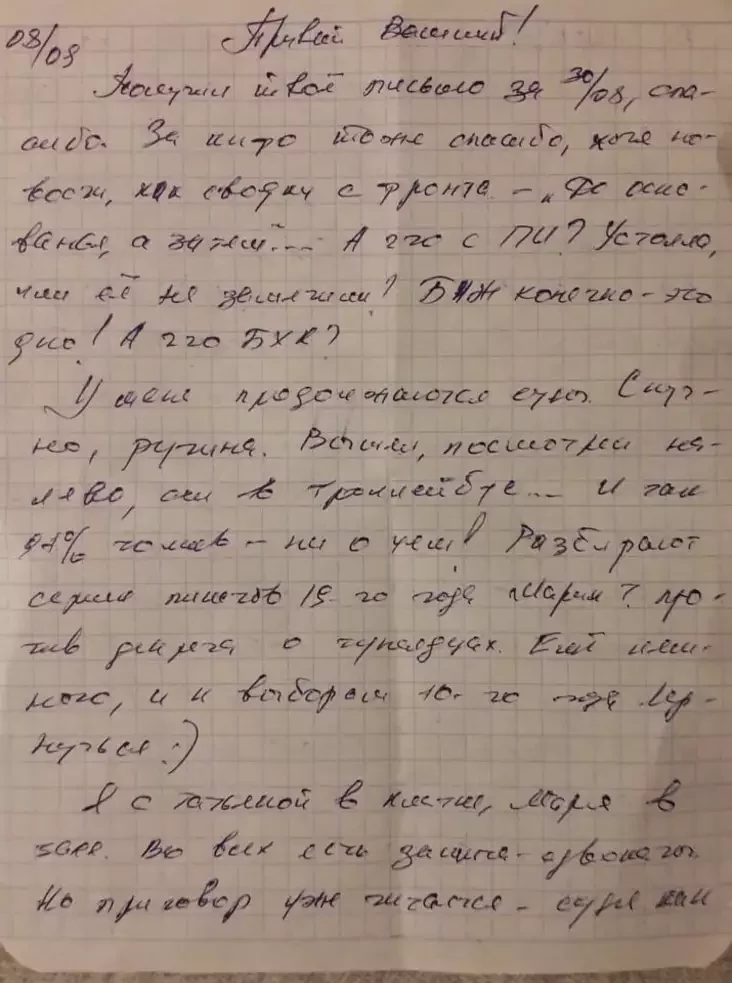 08/09 Привет Василий!
Получил твоё письмо за 30/08, спа-
сибо. За инфо тоже спасибо, хотя но-
вости, как сводки с фронта - „До осно-
ванья, а затем"... А что с ПИ? Устояло,
или её не замечили? БАЖ конечно - это
дно! А что БХК?
У меня продолжаются суды. Скуч-
но, рутина. Вышел, посмотрел на-
лево, сел в троллейбус... И так
томов - ни о чем! Разбирают
серию пикетов 19-го года "Марш? про-
тив декрета о тунеядцах. Ещё нем-
ного, и к выборам 10-го года вер-
нуться :)
Я с Татьяной в клетке, Мария в
зале. Во всех есть защита - адвокаты.
Но приговор уже читается - судья как